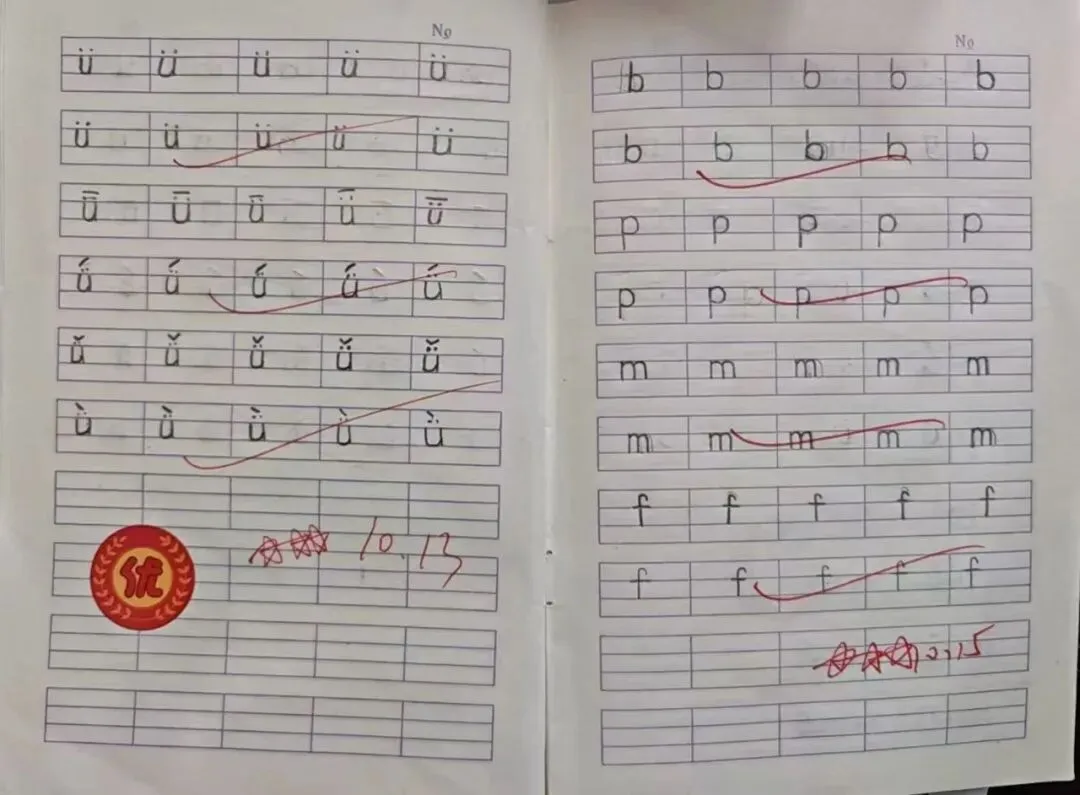 No
ü ü ü ü ü
ü ü ü ü ü
ǖ ǖ ǖ ǖ ǖ
ǘ ǘ ǘ ǘ ǘ
ǚ ǚ ǚ ǚ ǚ
ǜ ǜ ǜ ǜ ǜ
10.13
优
No
b b b b b
b b b b b
p p p p p
p p p p p
m m m m m
m m m m m
f f f f f
f f f f f
10.15